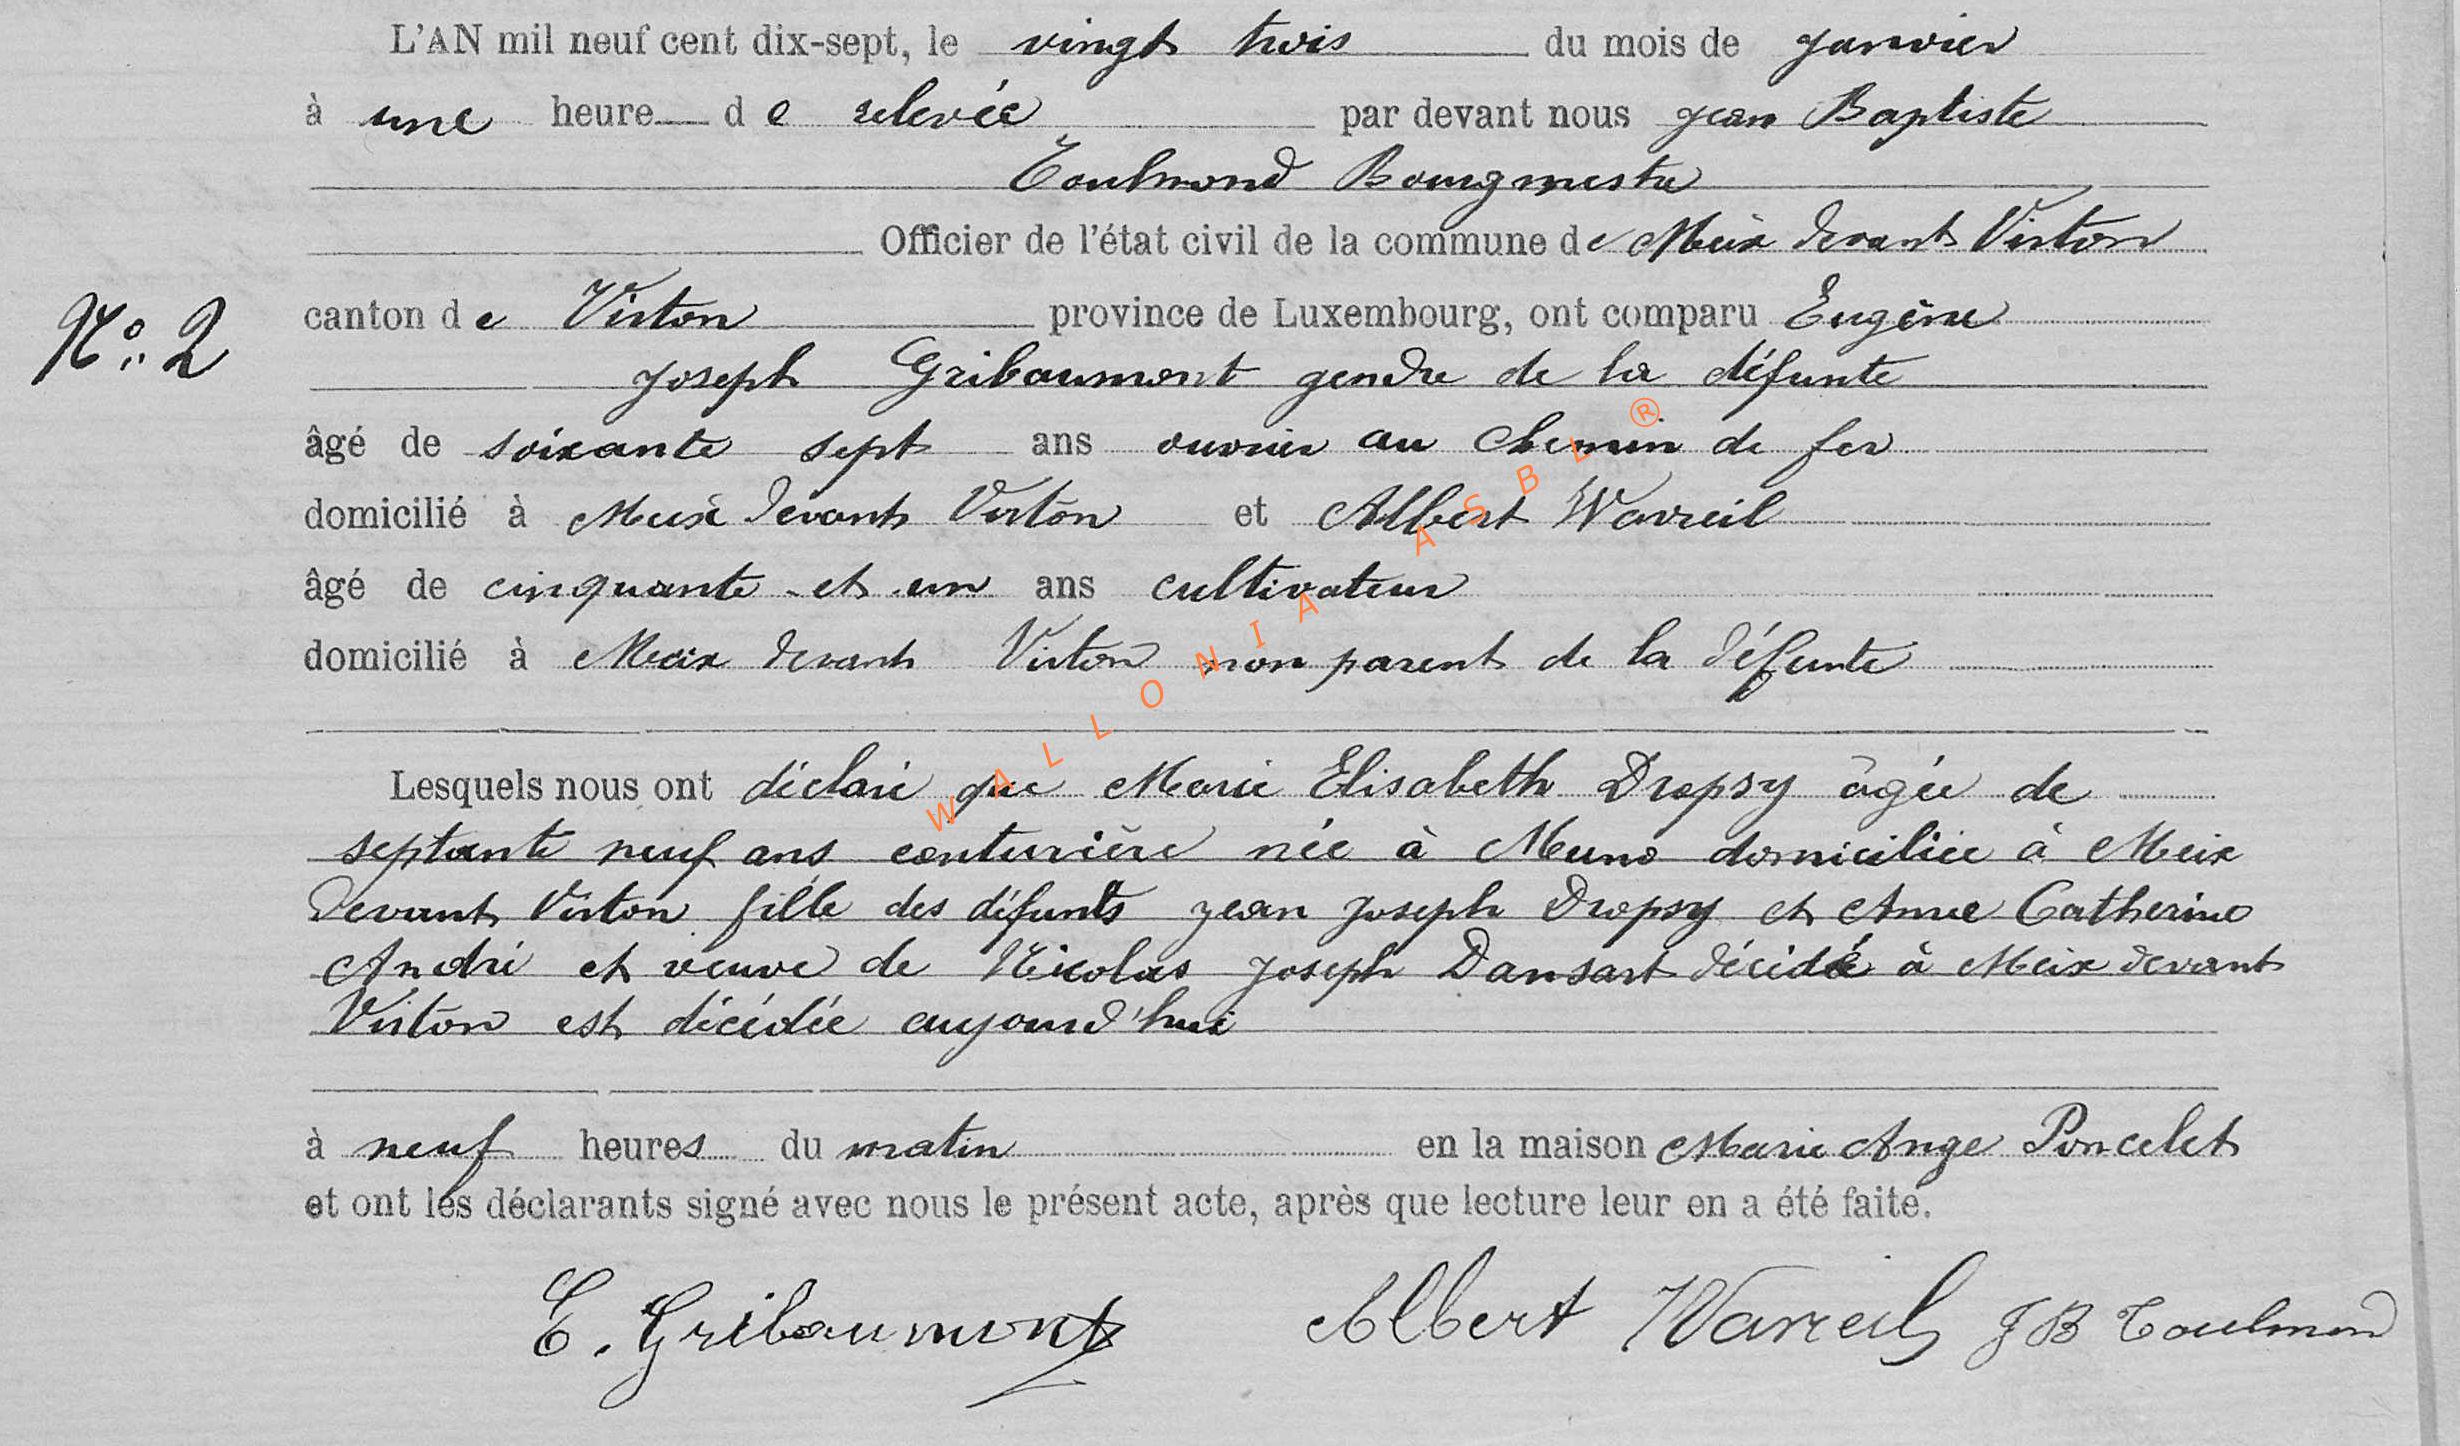 L'AN mil neuf cent dix-sept, le vingt trois du mois de janvier
à une heure de relevée par devant nous jean Baptiste
Toulmond Bourgmestre
Officier de l'état civil de la commune de Meix devant Virton
canton de Virton province de Luxembourg, ont comparu Eugène
N° 2
joseph Gribaumont gendre de la défunte
âgé de soixante sept ans ouvrier au chemin de fer
domicilié à Meix devant Virton et Albert Warreil
âgé de cinquante et un ans cultivateur
domicilié à Meix devant Virton non parent de la défunte
Lesquels nous ont déclaré que Marie Elisabeth Dropsy âgée de
septante neuf ans couturière née à Muno domiciliée à Meix
devant Virton fille des défunts jean joseph Dropsy et Anne Catherine
André et veuve de Nicolas joseph Dansart décédé à Meix devant
Virton est décédée aujourd'hui
à neuf heures du matin en la maison Marie Ange Poncelet
et ont les déclarants signé avec nous le présent acte, après que lecture leur en a été faite.
E. Gribaumont Albert Warreil JB Toulmond
WALLONIA ASBL ®